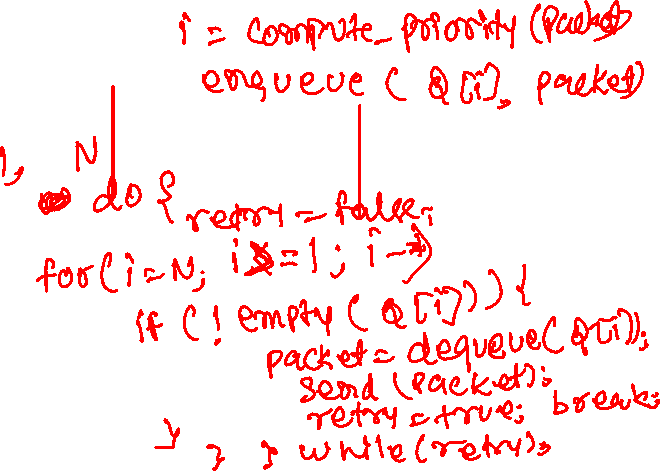 i = compute_priority (Packet)
enqueue ( Q[i], packet)
1, N
do {
retry = false;
for(i=N; i>=1; i--)
if (! empty ( Q[i])) {
packet = dequeue( Q[i]);
send (packet);
retry = true; break;
} } } while (retry);